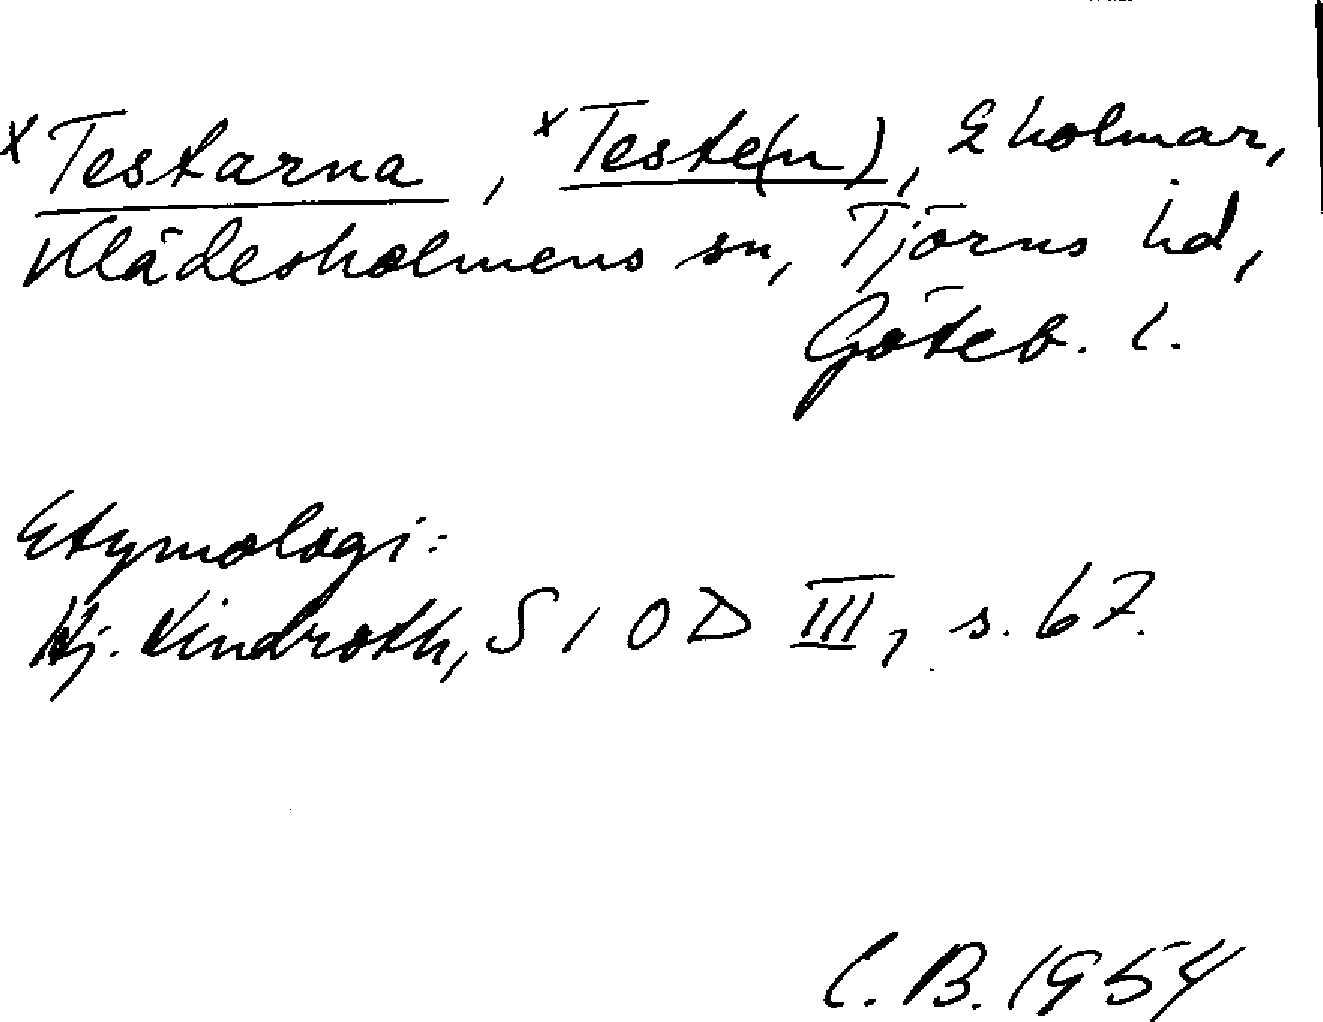 x Testarna, x Teste(n), 2 holmar,
Klädesholmens sn, Tjörns hd,
Göteb. l.
Etymologi:
Hj. Lindroth, SIOD III, s. 67.
C. B. 1954